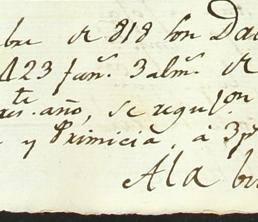 bre de 818 son Da
123 fan.s 3 alm.s de
te
res. año, se regul.on
y Primicia, á 3p
Ala bu